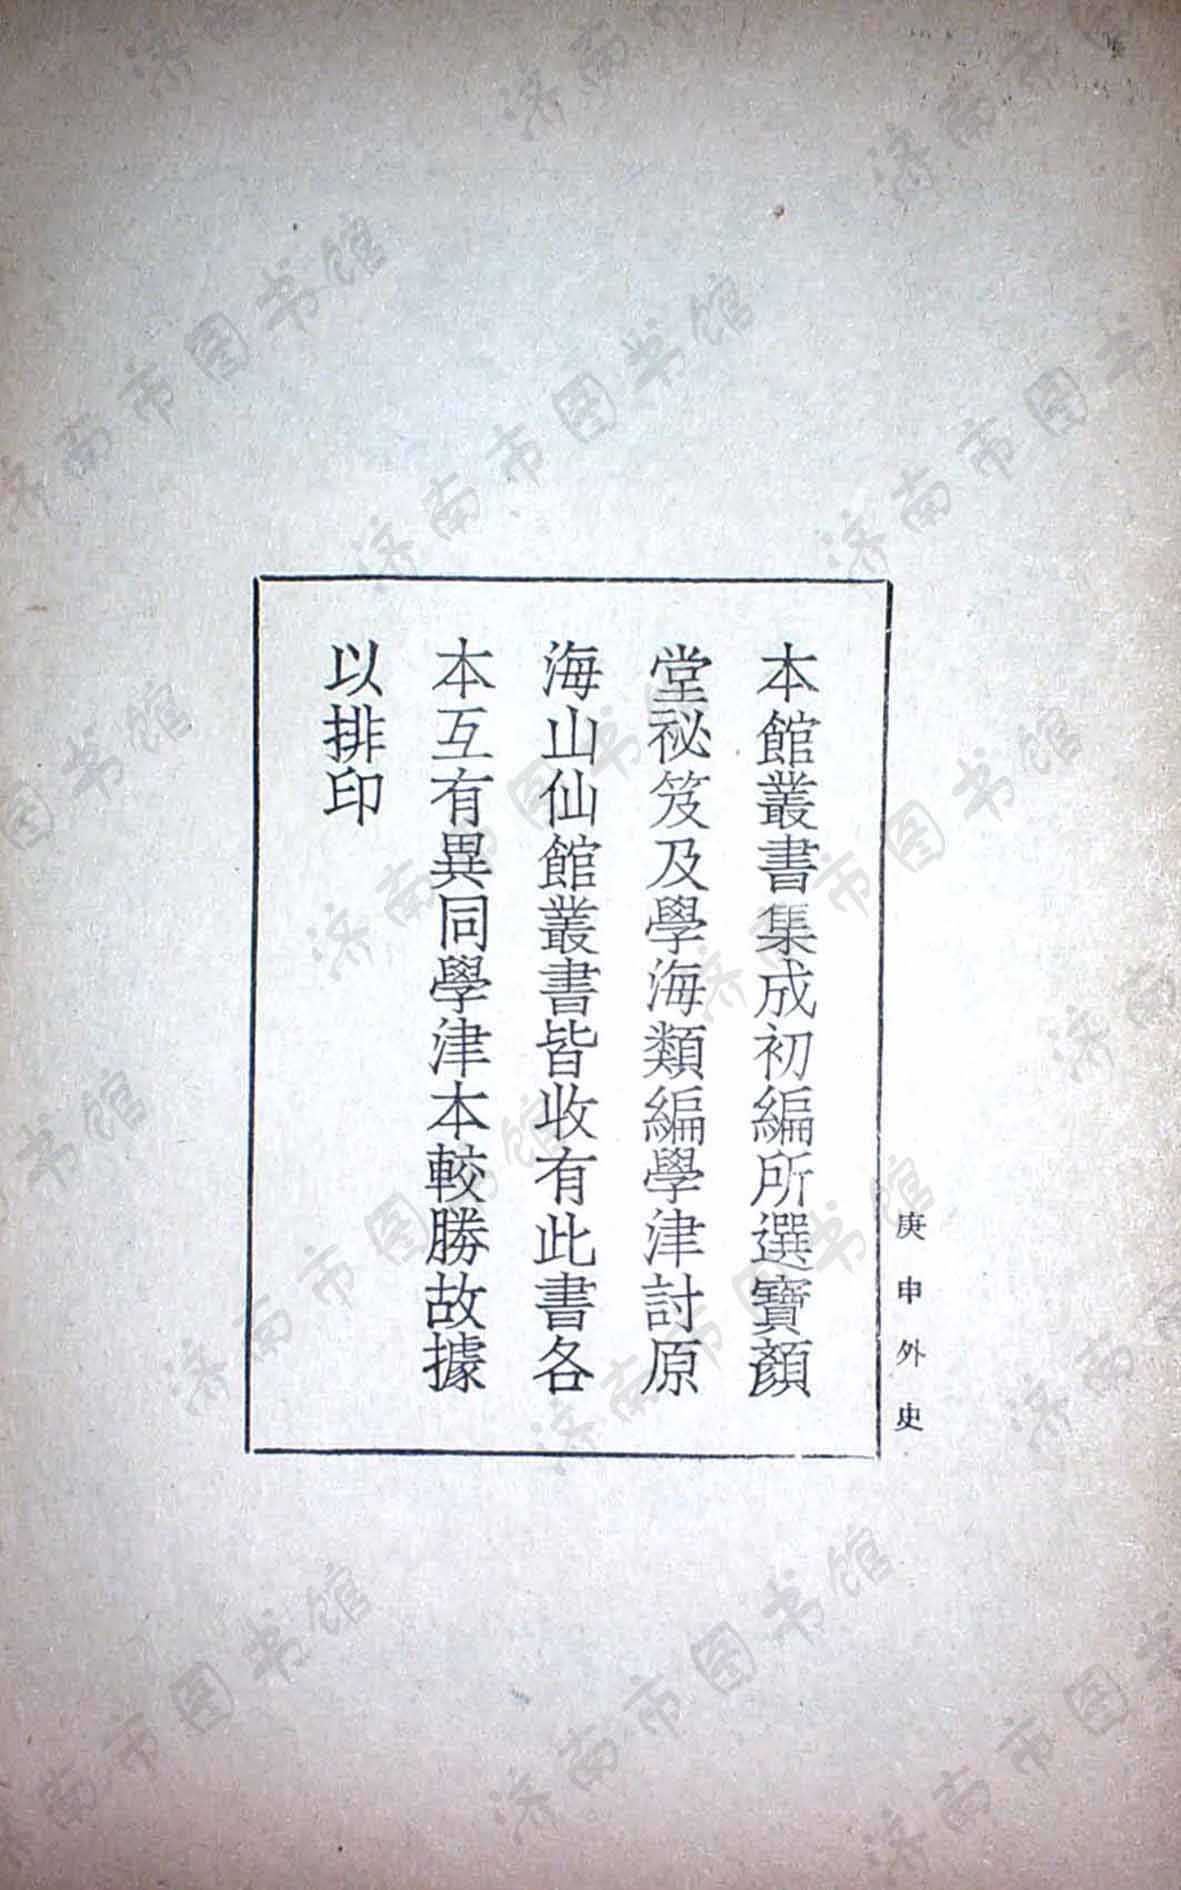 庚申外史
本館叢書集成初編所選寶顏
堂祕笈及學海類編學津討原
海山仙館叢書皆收有此書各
本互有異同學津本較勝故據
以排印
济南市图书馆